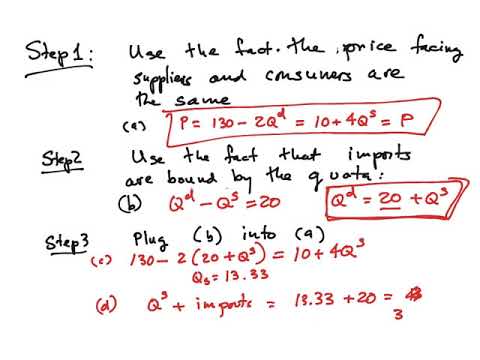 Step 1: Use the fact. the price facing
suppliers and consumers are
the same
(a) P = 130 - 2Q^d = 10 + 4Q^s = P
Step2 Use the fact that imports
are bound by the quota:
(b) Q^d - Q^s = 20 Q^d = 20 + Q^s
Step3 Plug (b) into (a)
(c) 130 - 2(20 + Q^s) = 10 + 4Q^s
Qs = 13.33
(d) Q^s + imports = 13.33 + 20 =
3